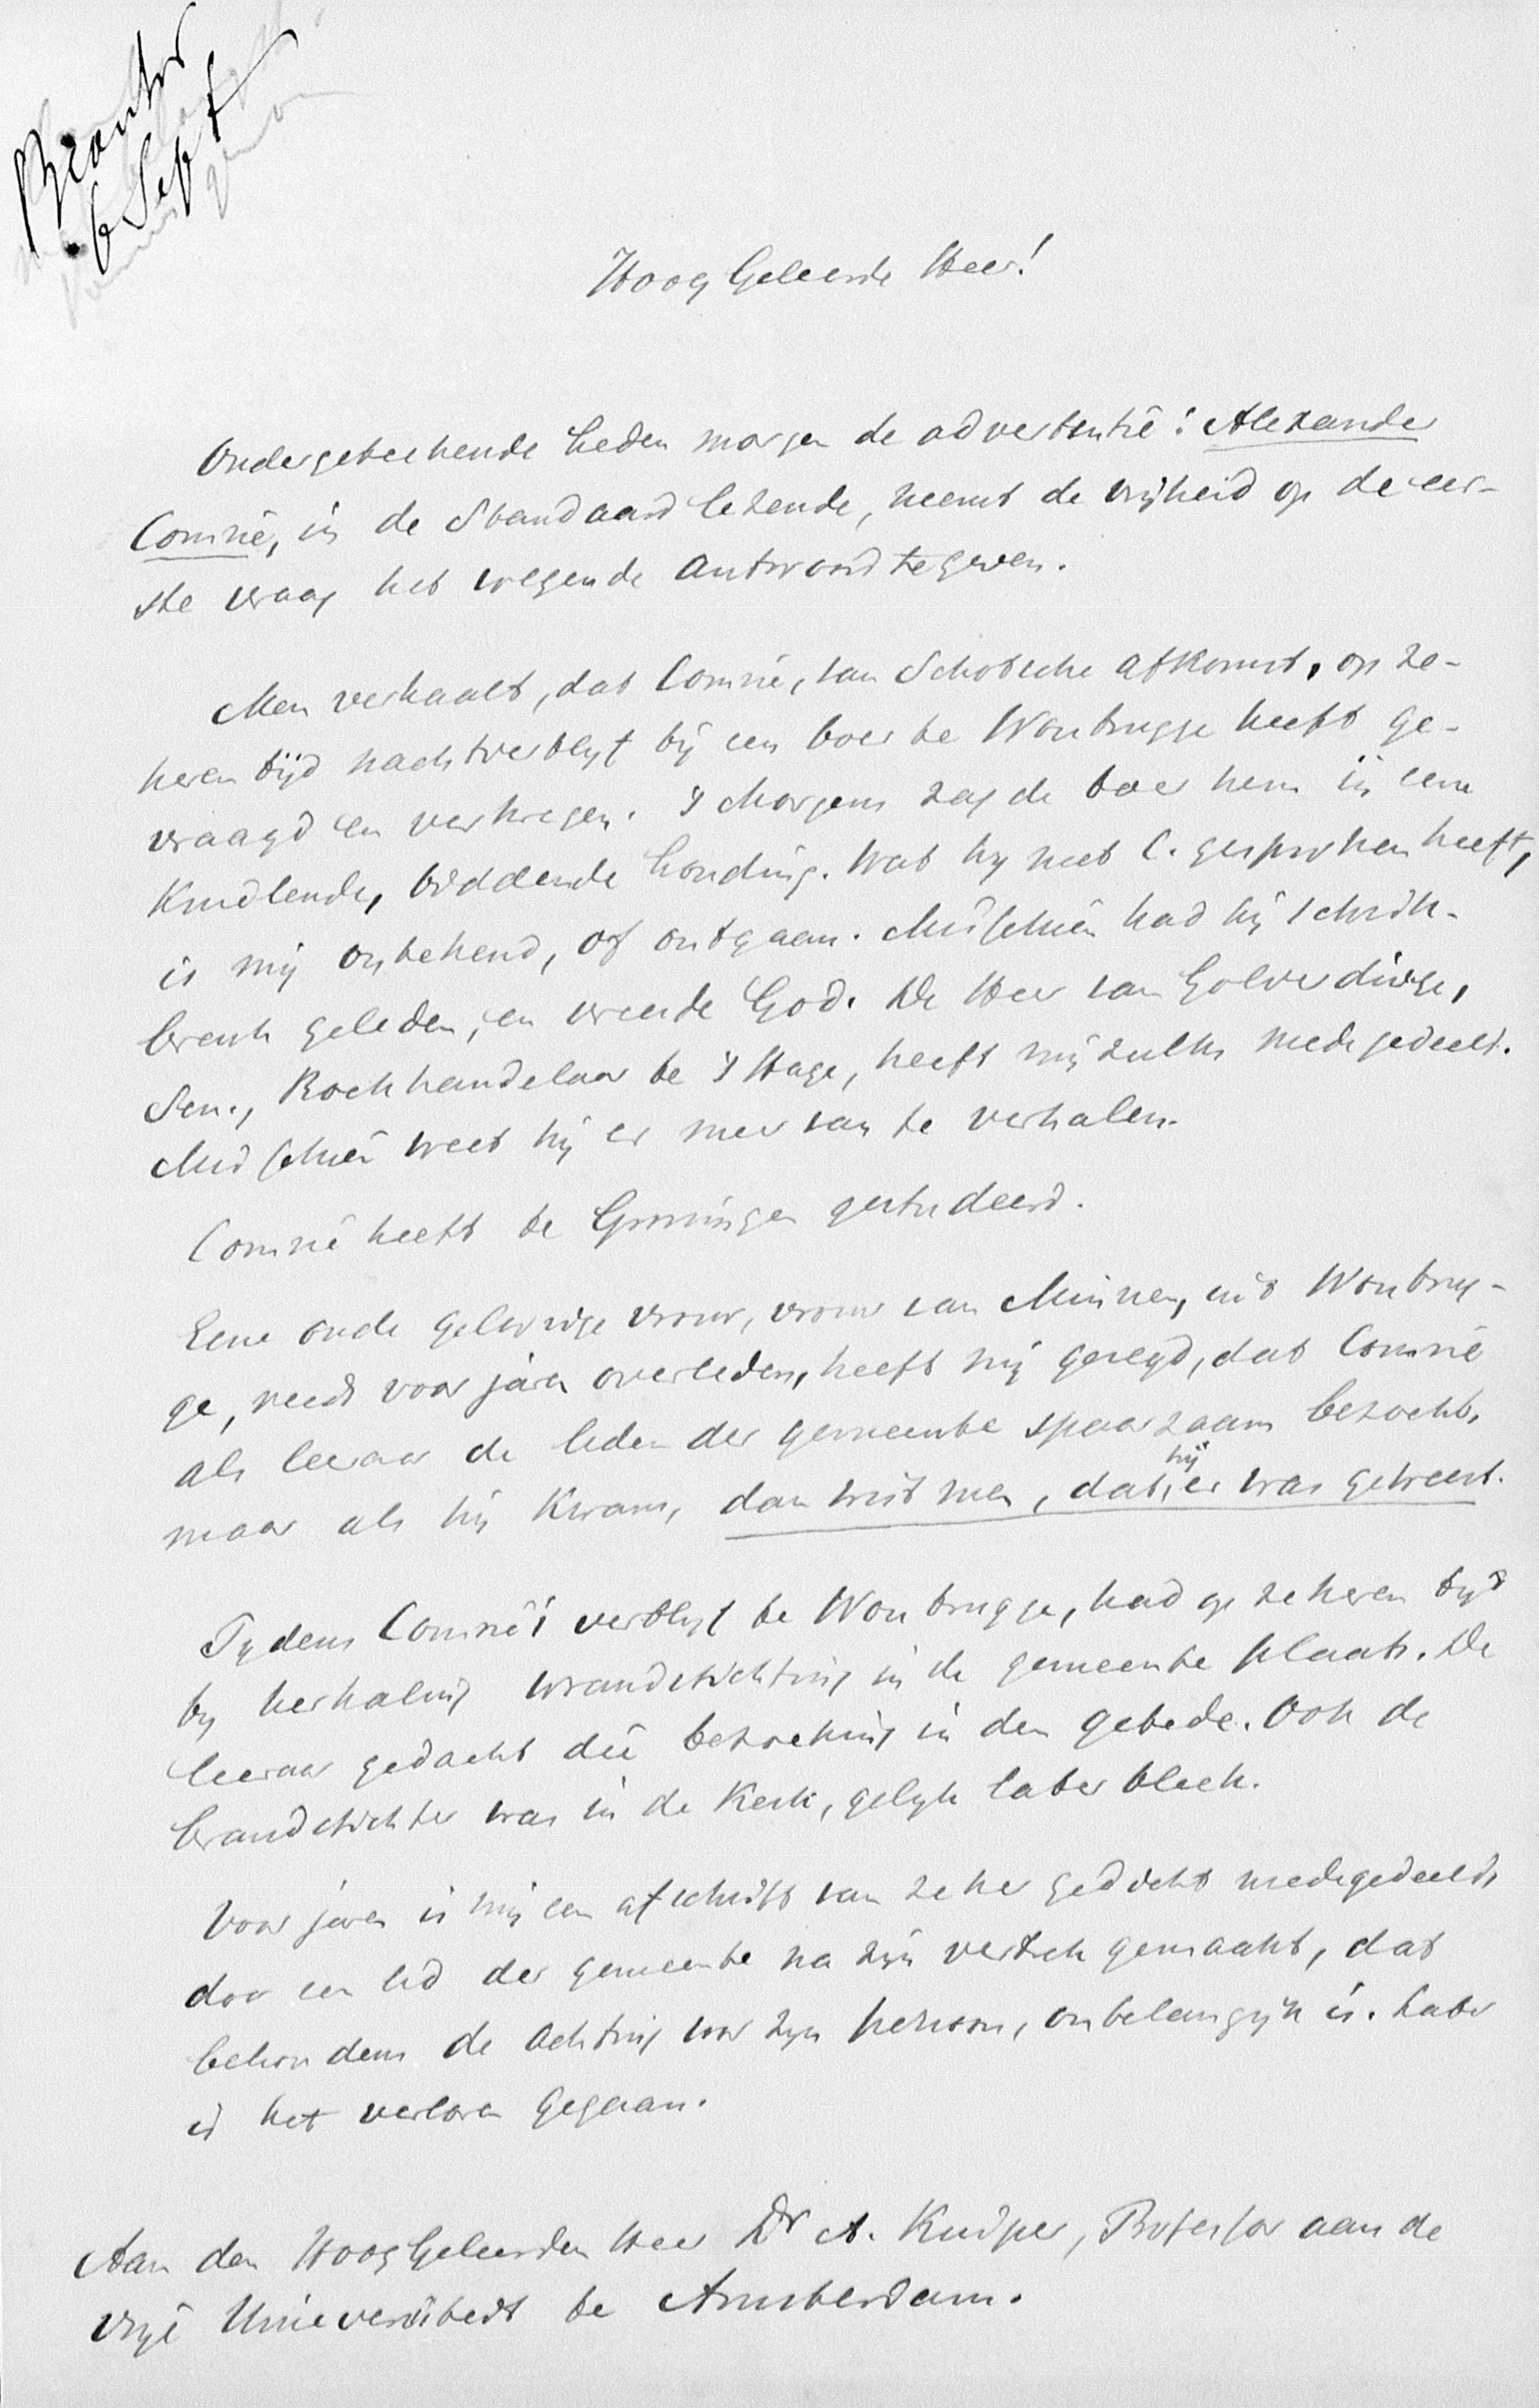 6 Sept
Hoog Geleerde Heer!
Ondergeteekende heden morgen de advertentie: Alexander
Comrie, in de Standaard lezende, neemt de vrijheid op de eer-
ste vraag het volgende antwoord te geven.
Men verhaalt, dat Comrie, van Schotsche afkomst, op ze-
keren tijd nachtverblijf bij een boer te Woubrugge heeft ge-
vraagd en verkregen. 's Morgens zag de boer hem in eene
knielende, biddende houding. Wat hij met C. gesproken heeft,
is mij onbekend, of ontgaan. Misschien had hij schip-
breuk geleden, en vreesde God. De Heer van Golverdinge,
Sen., Boekhandelaar te 's Hage, heeft mij zulks medegedeeld.
Misschien weet hij er meer van te verhalen.
Comrie heeft te Groningen gestudeerd.
Eene oude geloovige vrouw, vrouw van Minnen, uit Woubrug-
ge, reeds voor jaren overleden, heeft mij gezegd, dat Comrie
als leeraar de leden der gemeente spaarzaam bezocht,
maar als hij kwam, dan wist men, dat hij er was geweest.
Tydens Comrie's verblyf te Woubrugge, had op zekeren tyd
by herhaling brandstichting in de gemeente plaats. De
leeraar gedacht die bezoeking in den gebede. Ook de
brandstichter was in de Kerk, gelyk later bleek.
Voor jaren is mij een afschrift van zeker gedicht medegedeeld,
door een lid der gemeente na zijn vertrek gemaakt, dat
behoudens de achting voor zyn persoon, onbelangryk is. Later
is het verloren gegaan.
Aan den HoogGeleerden Heer Dr A. Kuiper, Professor aan de
Vrye Unieversiteit te Amsterdam.